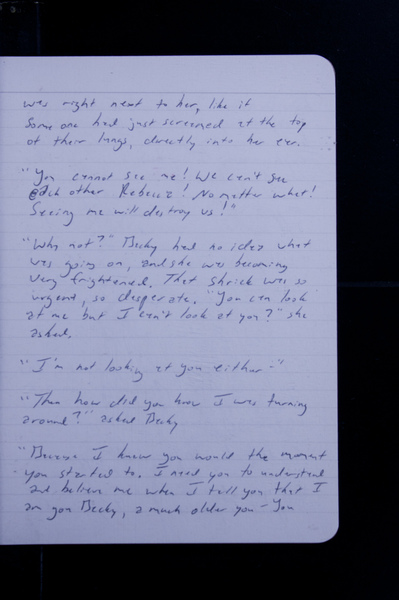 was right next to her, like if
Someone had just screamed at the top
of their lungs, directly into her ear.
"You cannot see me! We can't see
each other Rebecca! No matter what!
Seeing me will destroy us!"
"Why not?" Becky had no idea what
was going on, and she was becoming
very frightened. That shrick was so
urgent, so desperate. "You can look
at me but I can't look at you?" she
asked.
"I'm not looking at you either-"
"Then how did you know I was turning
around?" asked Becky
"Because I knew you would the moment
you started to. I need you to understand
and believe me when I tell you that I
am you Becky, a much older you - You